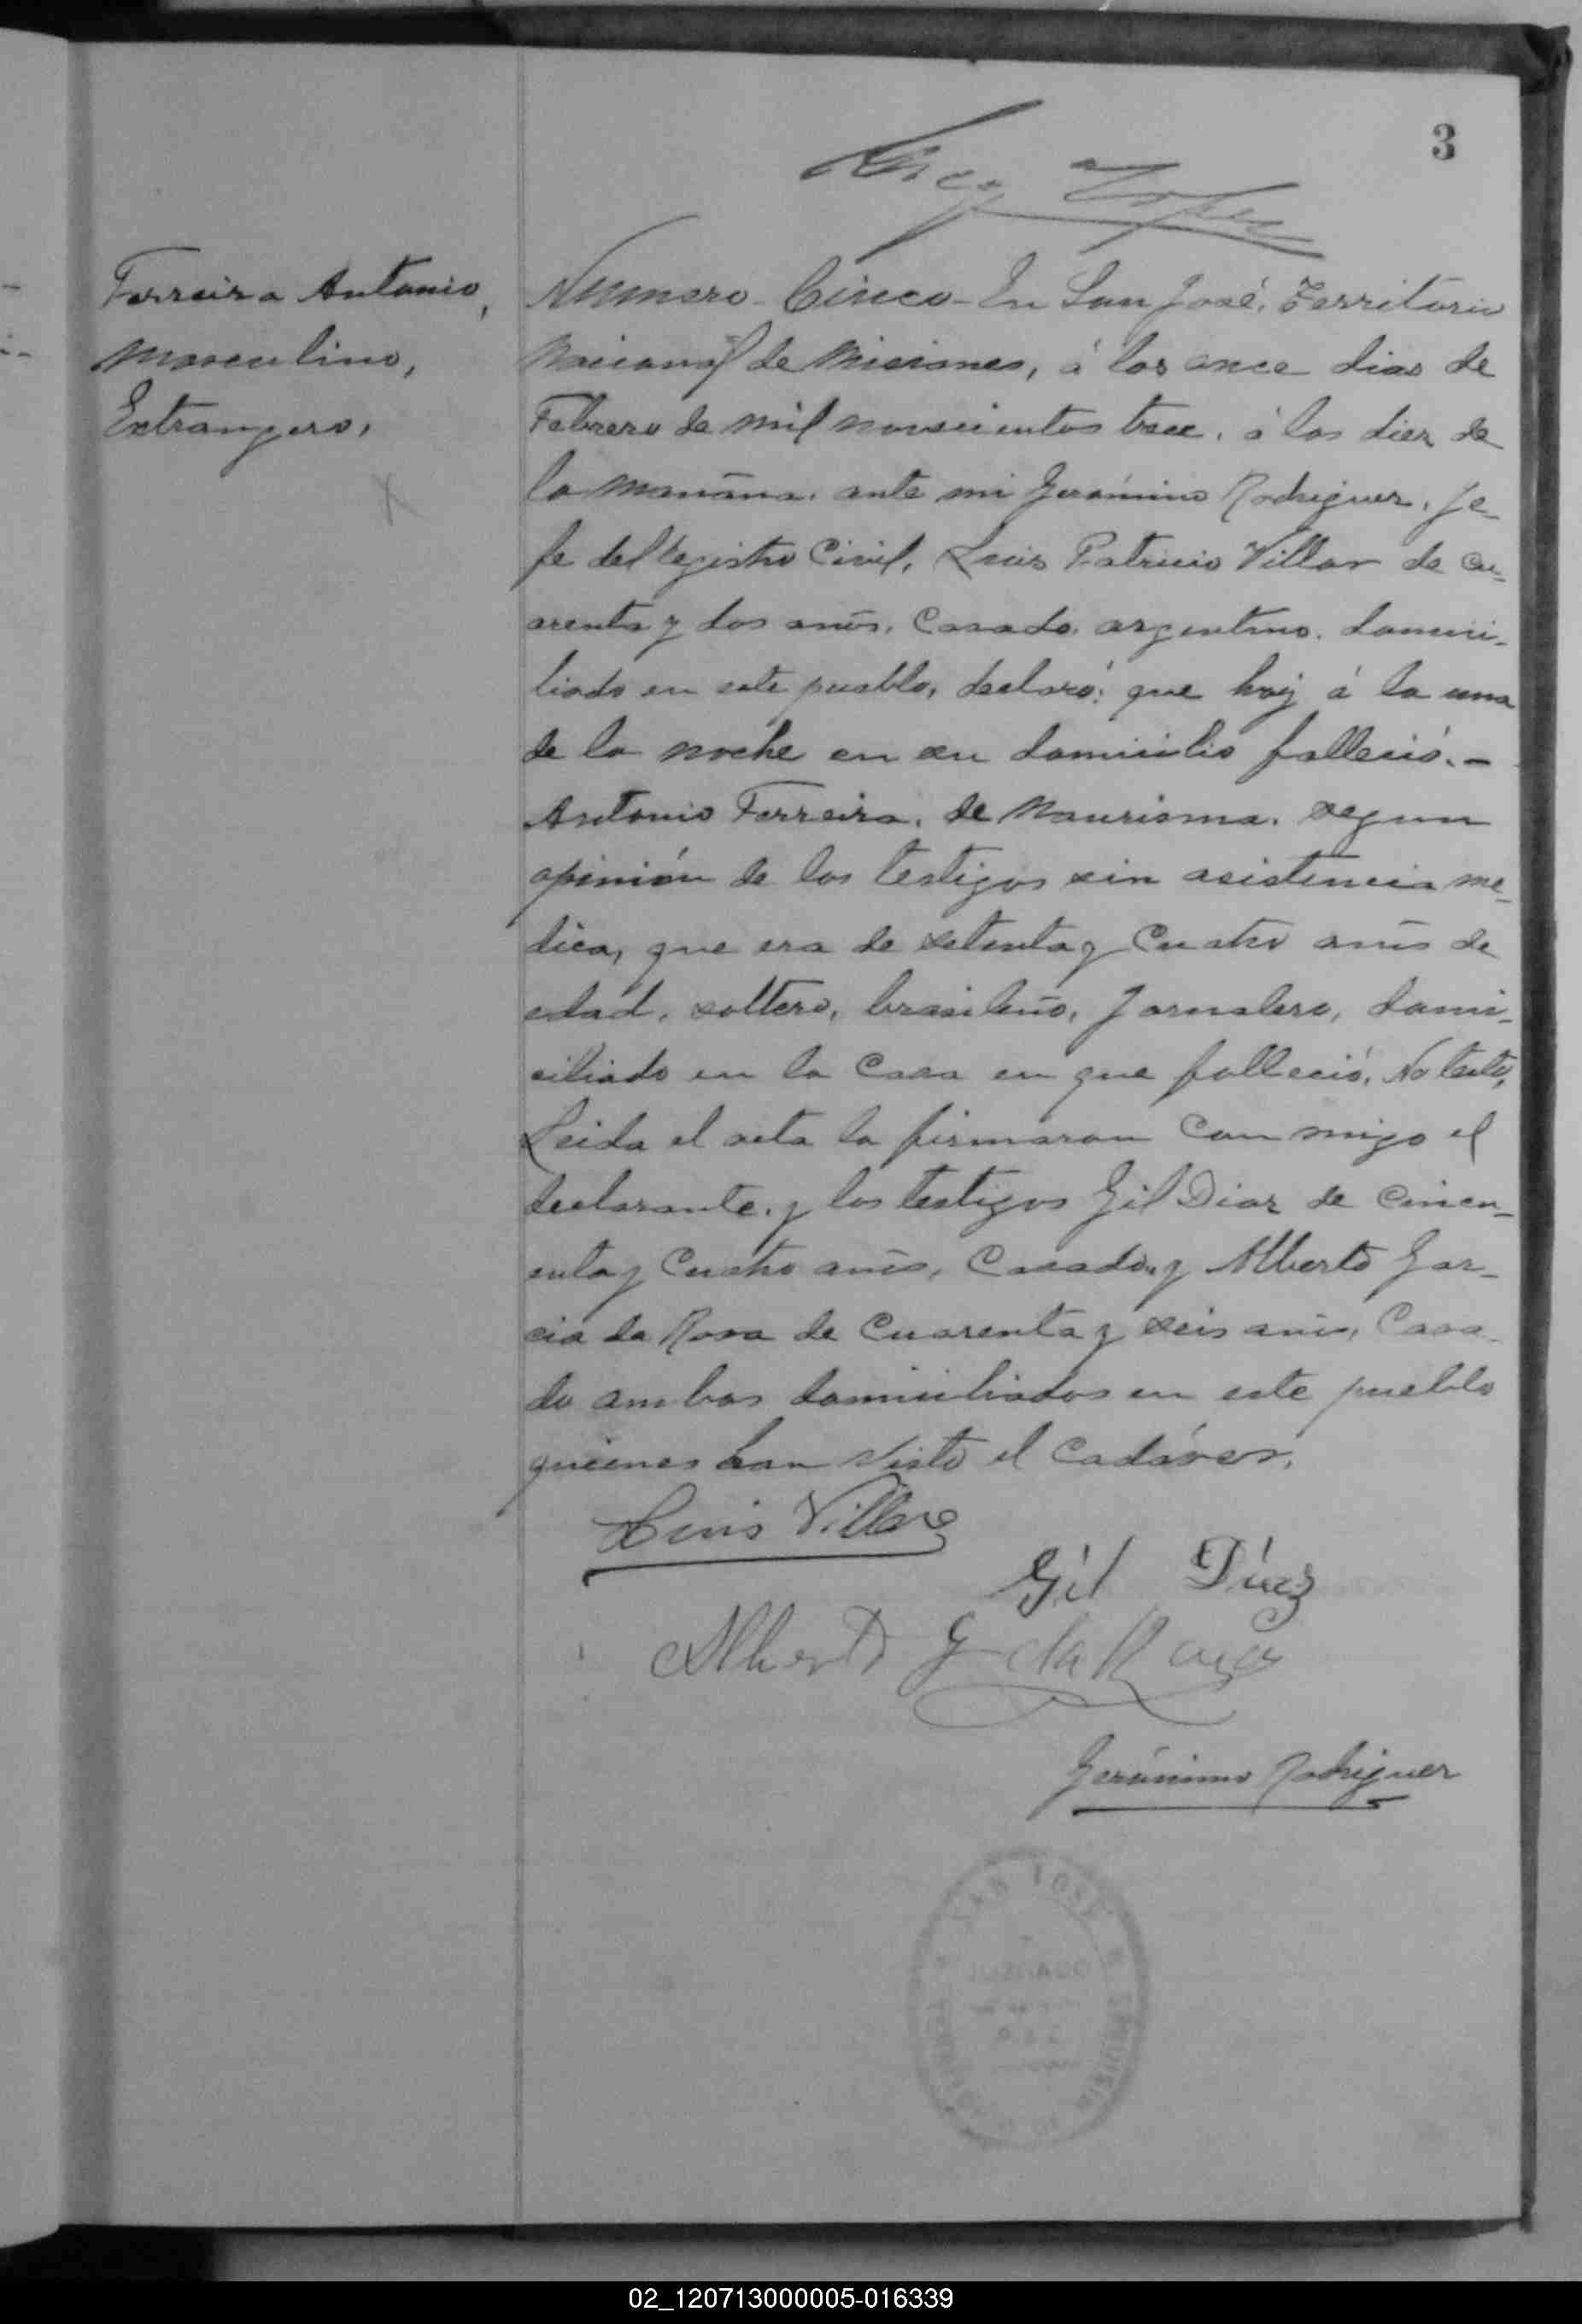 3
Ferreira Antonio,
Masculino,
Extrangero,
X
Numero Cinco - En San José, Territorio
Nacional de Misiones, á los once dias de
Febrero de mil novecientos trece, á las diez de
la mañana, ante mi Gerónimo Rodriguez, Je-
fe del Registro Civil, Luis Patricio Villar de cu-
arenta y dos años, Casado, argentino, domici-
liado en este pueblo, declaró: que hoy á la una
de la noche en su domicilio falleció. -
Antonio Ferreira, de segun
opinión de los testigos sin asistencia me-
dica, que era de setenta y Cuatro años de
edad, soltero, brasileño, Jornalero, domi-
ciliado en la Casa en que falleció, No testó,
Leida el acta la firmaron Con migo el
declarante, y los testigos Gil Diaz de Cincu-
enta y Cuatro años, Casado, y Alberto Gar-
cia da Rosa de Cuarenta y seis años, Casa-
do ambos domiciliados en este pueblo
quienes han visto el Cadáver.
Luis Villar
Gil Díaz
Alberto G da Rosa
Gerónimo Rodriguez
SAN JOSÉ
02_120713000005-016339